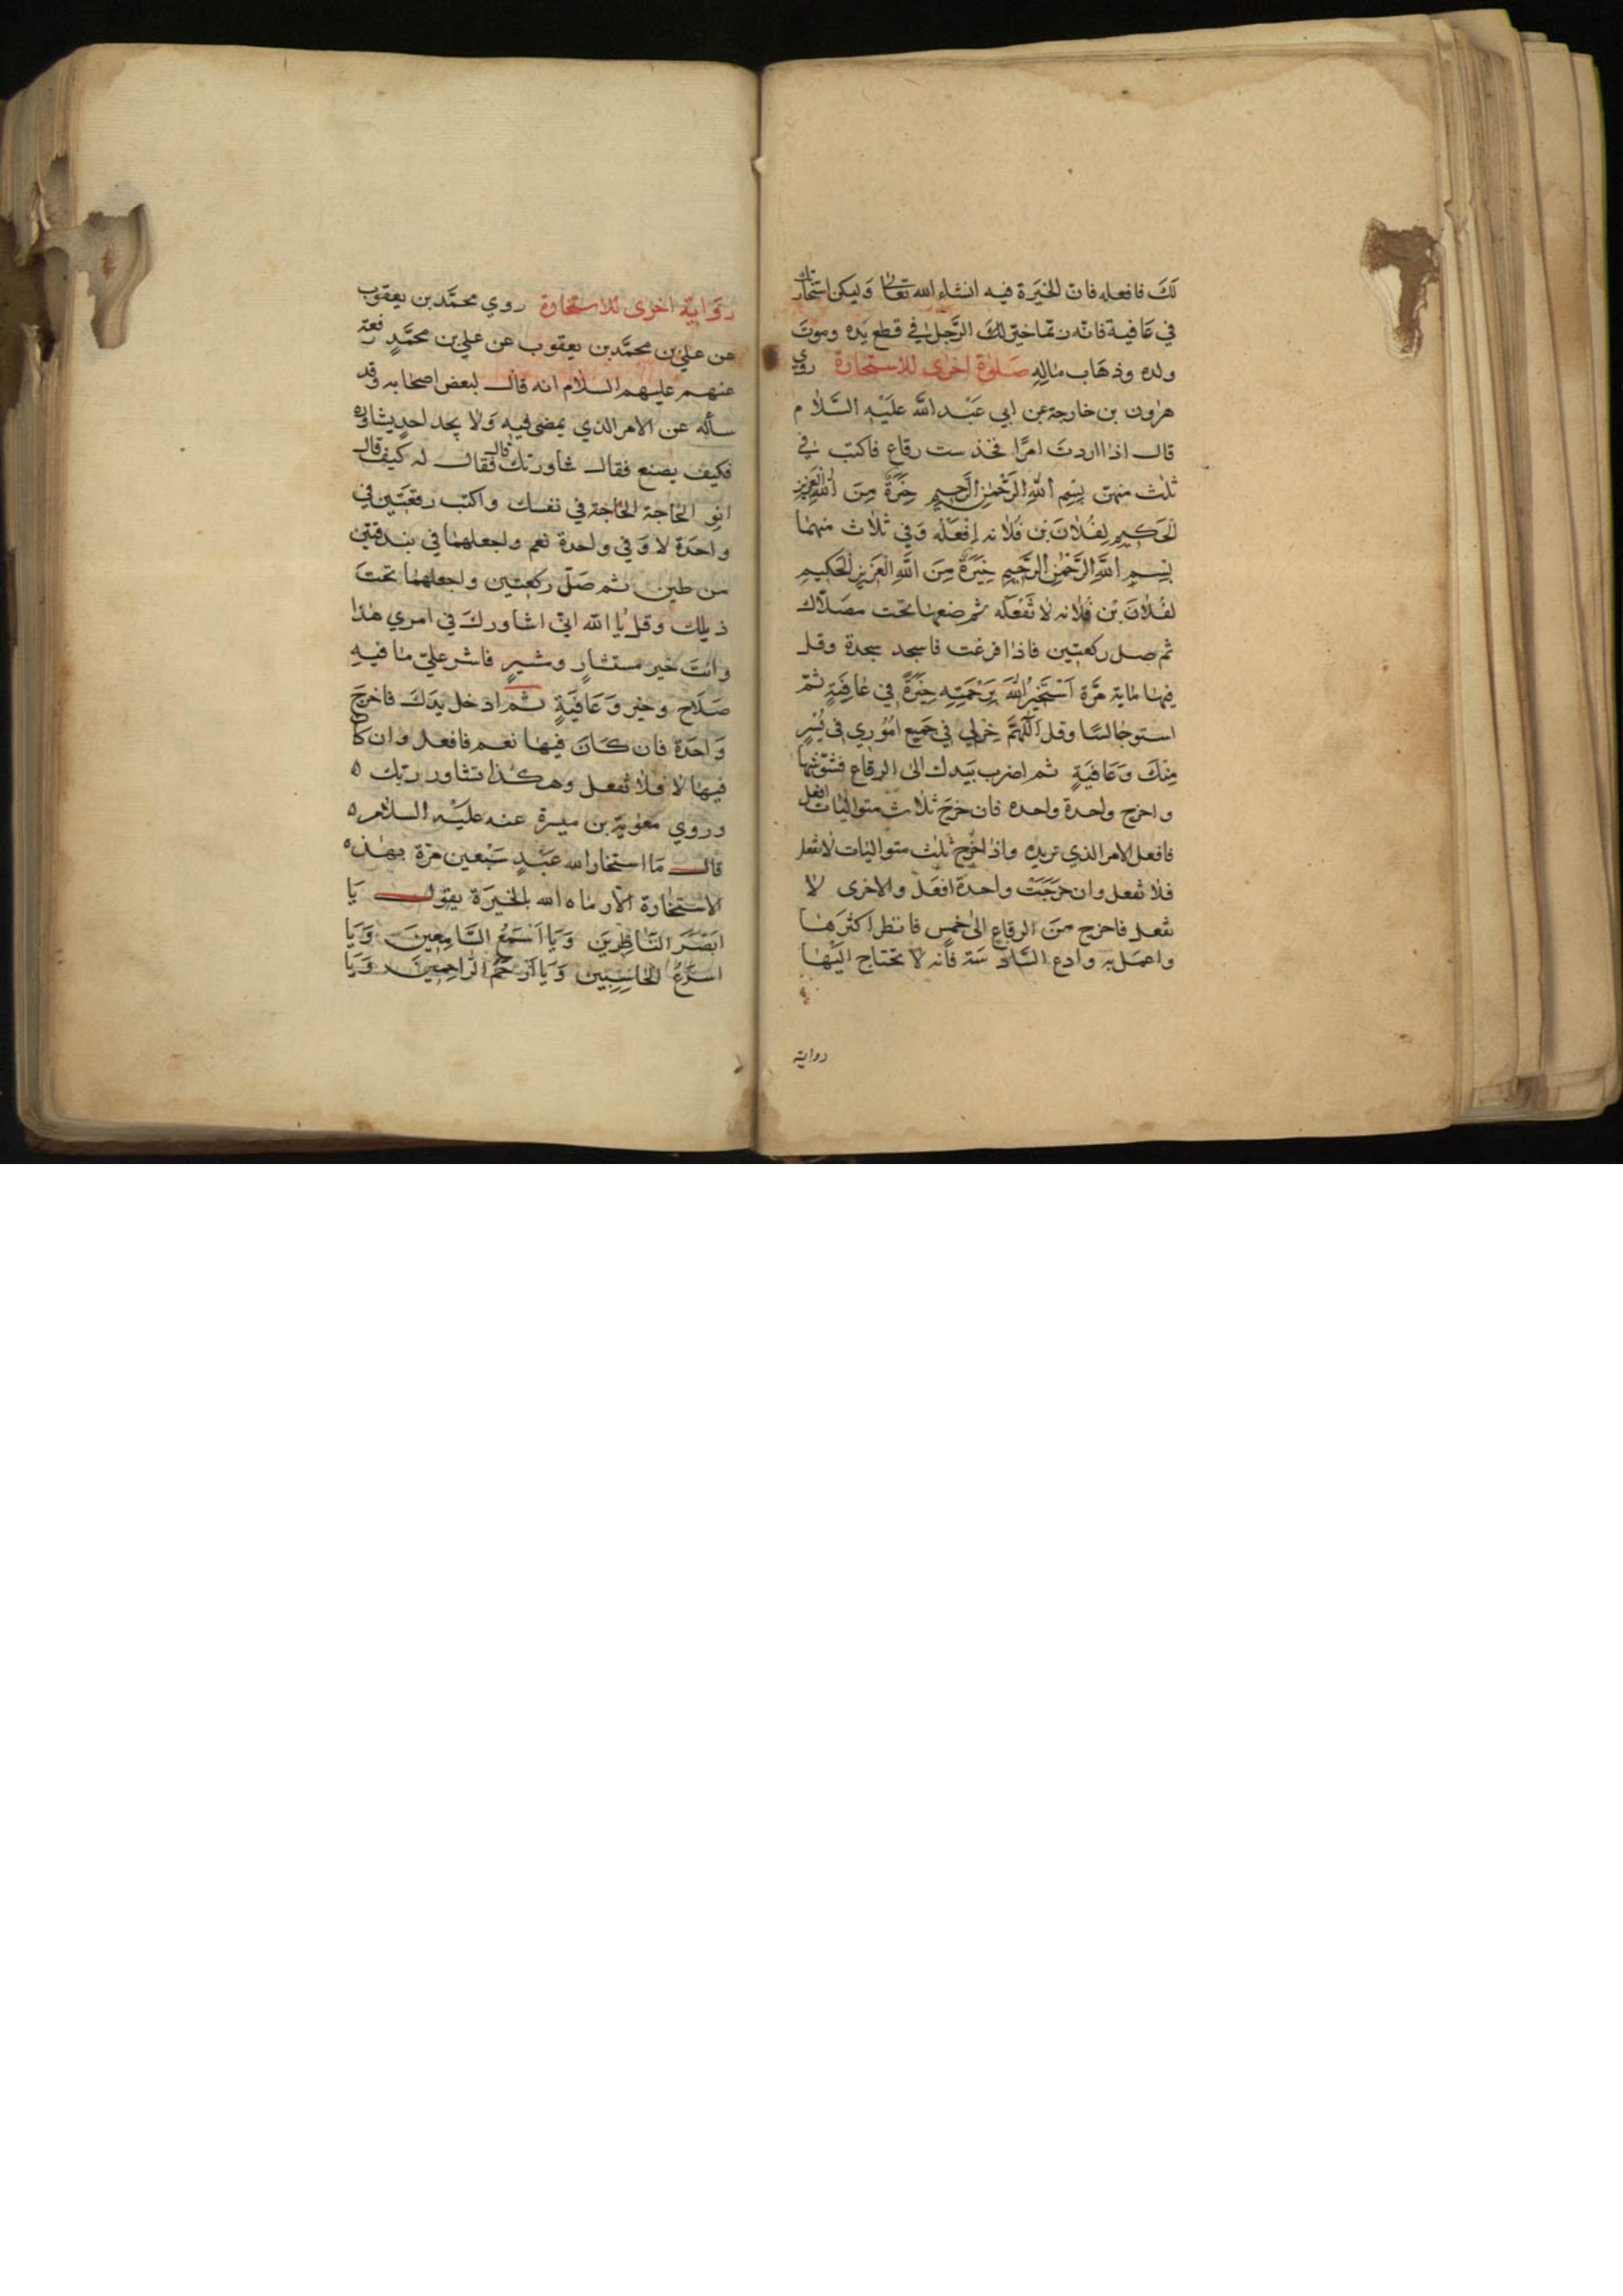 لَكَ فافعله فان الخيَرة فيه انشاء الله تعالى وَليكن استخارتك
في عَافية فانّه ربّما خيرَ للكَ الرَّجل في قطع يَده وموتَ
ولده وذهَاب مَاله صَلوة اخرى للاستخارة روي
هرون بن خارجة عن ابي عَبْد الله علَيْه السَّلام
قال اذا اردتَ امرًا فخذ ست رقاع فاكتب في
ثلث منهن بِسْمِ اللهِ الرَّحْمٰنِ الرَّحِيمِ خِيَرَةٌ مِنَ اللهِ الْعَزِيزِ
الْحَكِيمِ لِفُلانَ بْنِ فُلانه اِفْعَلْه وَفي ثلاث منهما
بِسْمِ اللهِ الرَّحْمٰنِ الرَّحِيمِ خِيَرَةٌ مِنَ اللهِ الْعَزِيزِ الْحَكِيمِ
لفُلانَ بْن فُلانه لا تَفْعَلْه ثم ضعها تحت مصَلّاك
ثم صل ركعتين فاذا فرغت فاسجد سجدة وقل
فيها ماية مَرَّة اَسْتَخِيرُ اللهَ بِرَحْمَتِه خِيَرَةً في عَافِيَةٍ ثمّ
استو جالسًا وقل اَللّهُمَّ خِرْ لِي في جَميع اُمُوري في يُسْرٍ
مِنْكَ وَعَافِيَةٍ ثم اضرب بيَدك الى الرقاع فشوّشها
واخرج واحدة واحده فان خرجَ ثلاث متواليات افعل
فافعل الامر الذي تريده واذا خرج ثلث متواليات لا تفعل
فلا تفعل وان خرَجَتْ واحدة افعَل والاخرى لا
تفعل فاخرج منَ الرقاع الى خمس فانظر اكثرَهَا
واعمَل به وادع السَّادسَة فانه لا تحتاج اليْهَا
روايه
روَايَة اخرى للاستخارة روي محمَّد بن يعقوب
عن علي بن محمَّد بن يعقوب عن علي بن محمَّدٍ رفعه
عنهم عليهم السلام انه قال لبعض اصحَابه وقد
سأله عن الامر الذي يمضى فيه وَلا يجد احد يشاوره
فكيف يصنع فقال شاور ربّك قال فقال له كيف قال
انو الحَاجة الحَاجة في نفسك واكتب رقعتين في
واحَدة لا وَفي واحدة نعم واجعلهما في بندقتين
من طين ثم صَلّ ركعتين واجعلهما تحتَ
ذيلك وقل يَا الله انّي اشاورك في امري هذا
وانتَ خير مستشارٍ ومشيرٍ فاشر عليّ ما فيهِ
صَلَاح وخير وَعَافيَةٍ ثم ادخل يدَكَ فاخرج
وَاحَدة فان كَانَ فيهَا نعم فافعل وان كا
فيهَا لا فلا تفعل وهكذا تشاور ربّك ه
وروي معٰويَة بن ميسرة عنه عليْه السلام ه
قال مَا استخار الله عَبْدٍ سَبْعين مَرّة بهذه
الاستخَارة الّا رمَاه الله بالخيَرة يقول يَا
ابَصْرَ النَّاظِرِينَ وَيَا اَسْمَعَ السَّامِعِينَ وَيَا
اَسْرَعَ الحَاسِبِين وَيَا اَرْحَمَ الرَّاحِمِينَ وَيَا